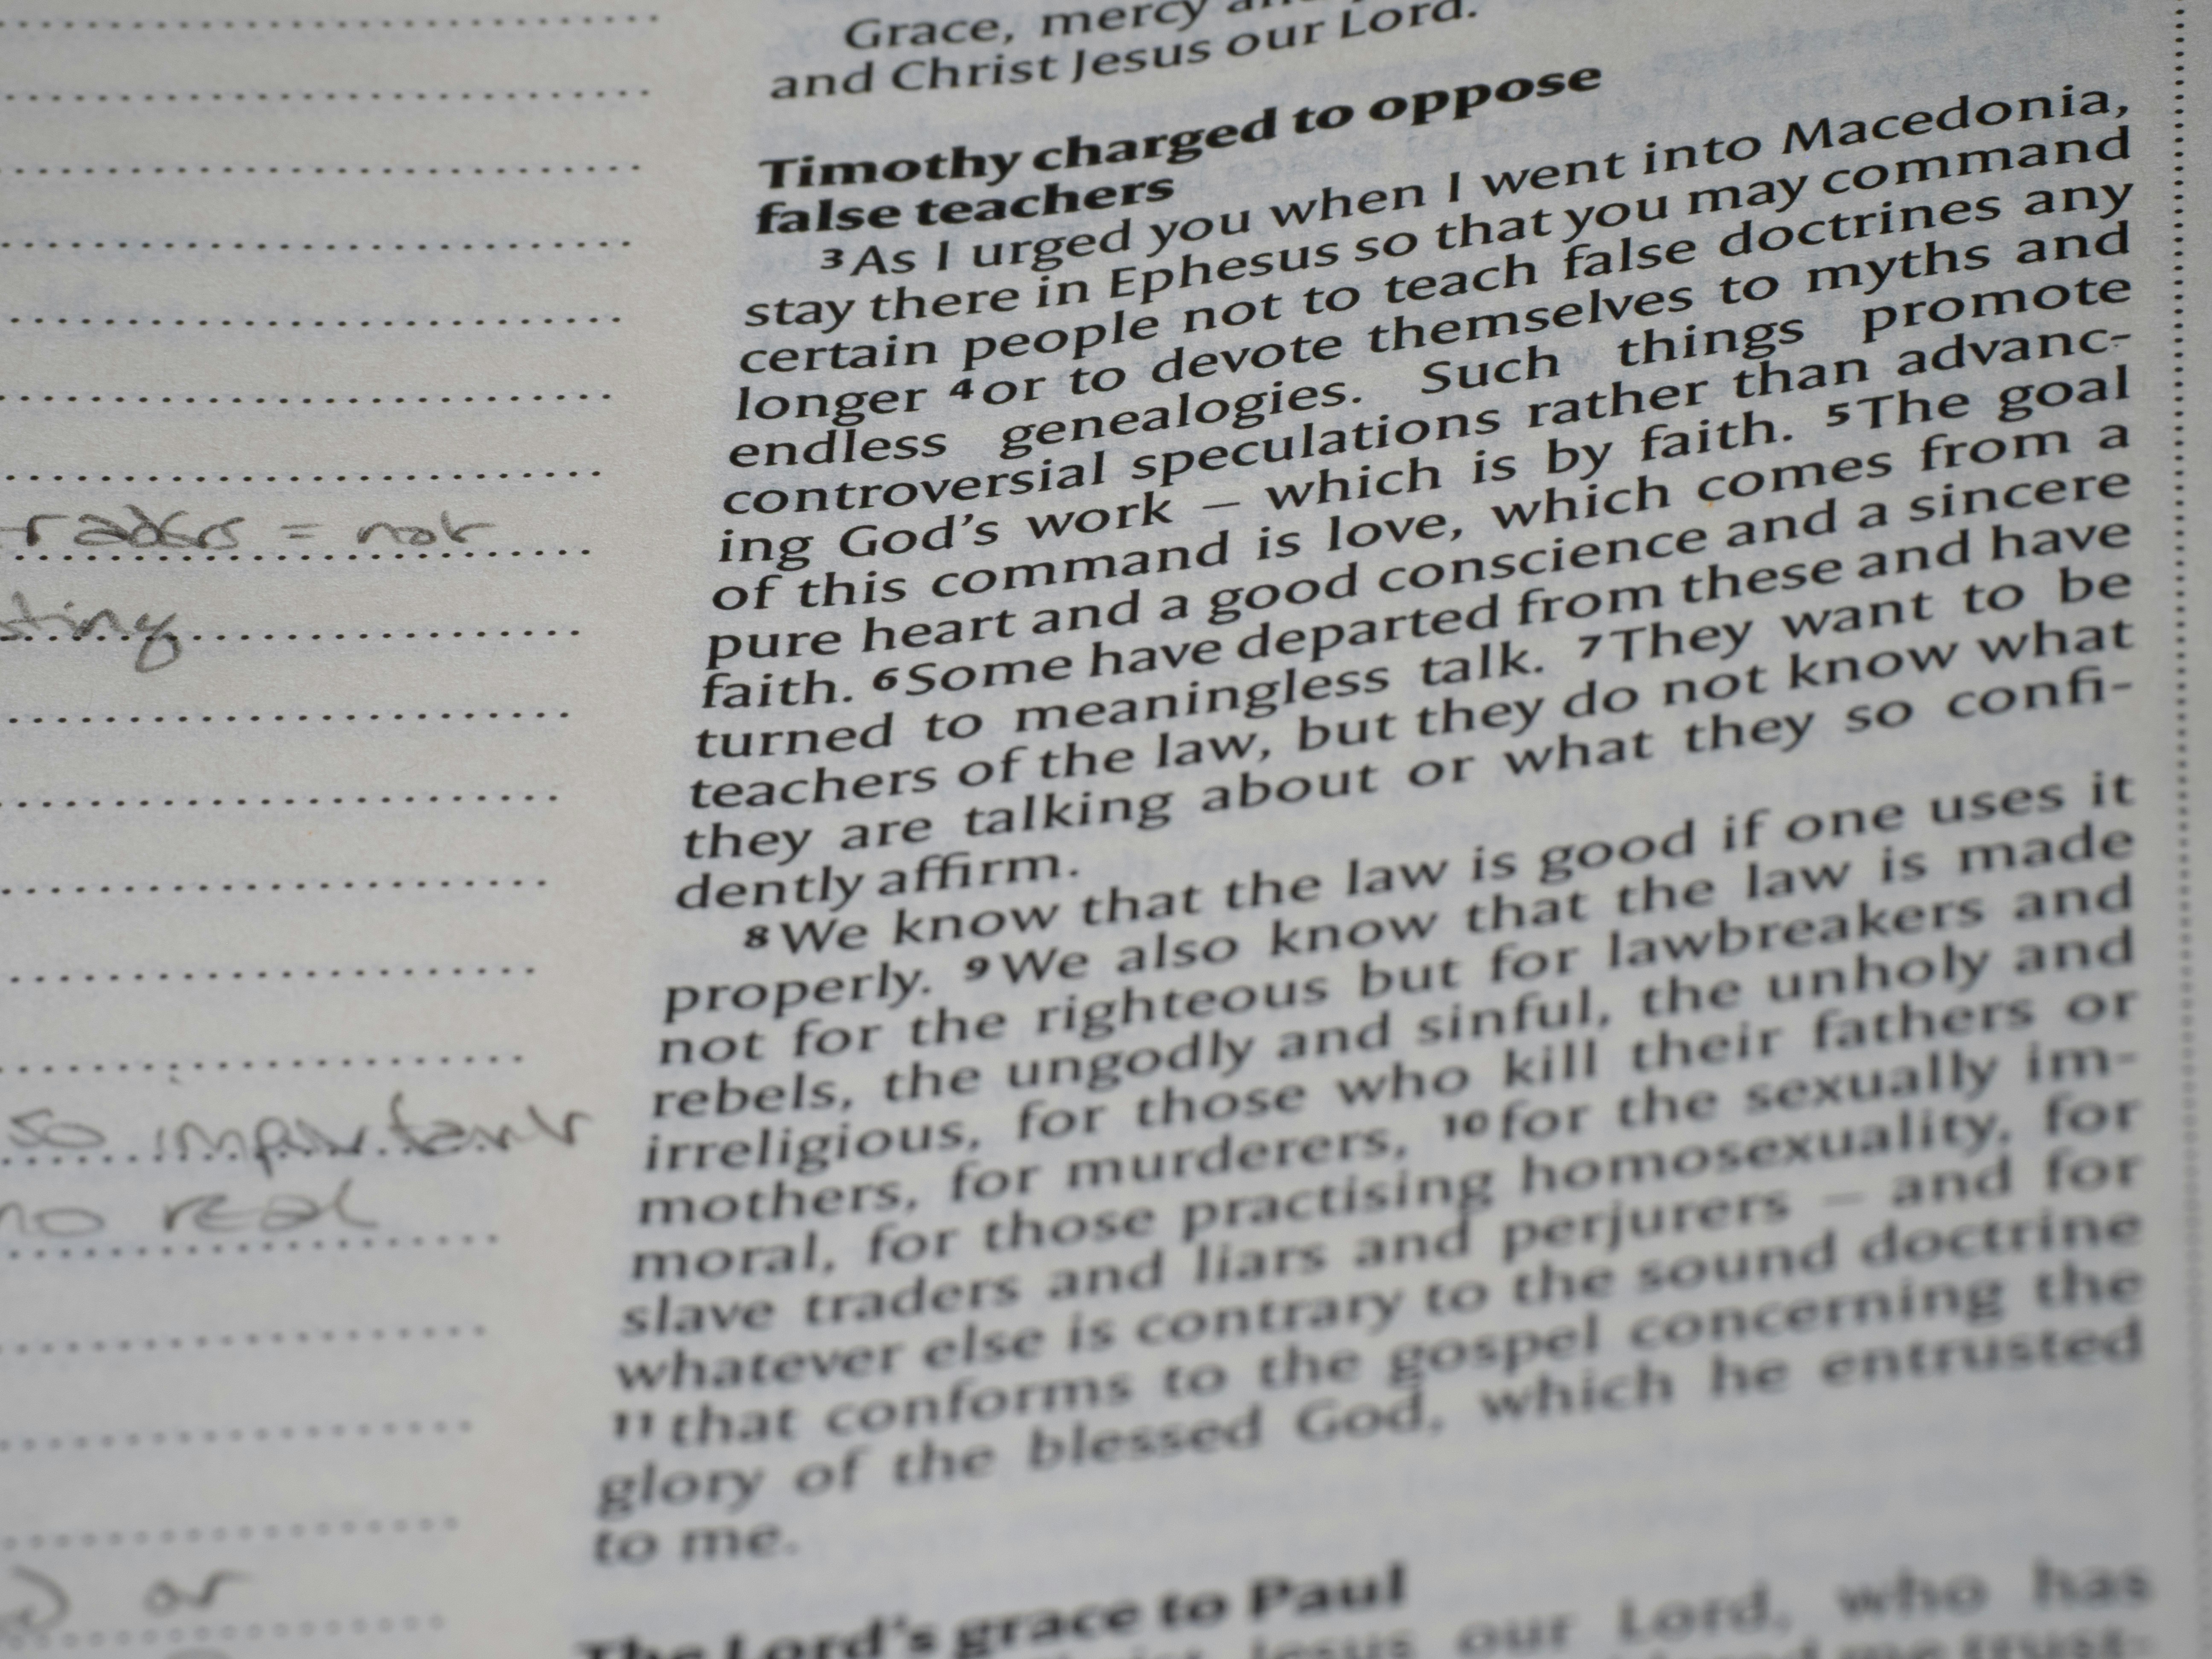 Grace, mercy
and Christ Jesus our Lord.
Timothy charged to oppose
false teachers
3 As I urged you when I went into Macedonia,
stay there in Ephesus so that you may command
certain people not to teach false doctrines any
longer 4 or to devote themselves to myths and
endless genealogies. Such things promote
controversial speculations rather than advanc-
ing God's work – which is by faith. 5 The goal
of this command is love, which comes from a
pure heart and a good conscience and a sincere
faith. 6 Some have departed from these and have
turned to meaningless talk. 7 They want to be
teachers of the law, but they do not know what
they are talking about or what they so confi-
dently affirm.
8 We know that the law is good if one uses it
properly. 9 We also know that the law is made
not for the righteous but for lawbreakers and
rebels, the ungodly and sinful, the unholy and
irreligious, for those who kill their fathers or
mothers, for murderers, 10 for the sexually im-
moral, for those practising homosexuality, for
slave traders and liars and perjurers – and for
whatever else is contrary to the sound doctrine
11 that conforms to the gospel concerning the
glory of the blessed God, which he entrusted
to me.
The Lord's grace to Paul
Jesus our Lord, who has
me trust-
= not
so important
no real
or